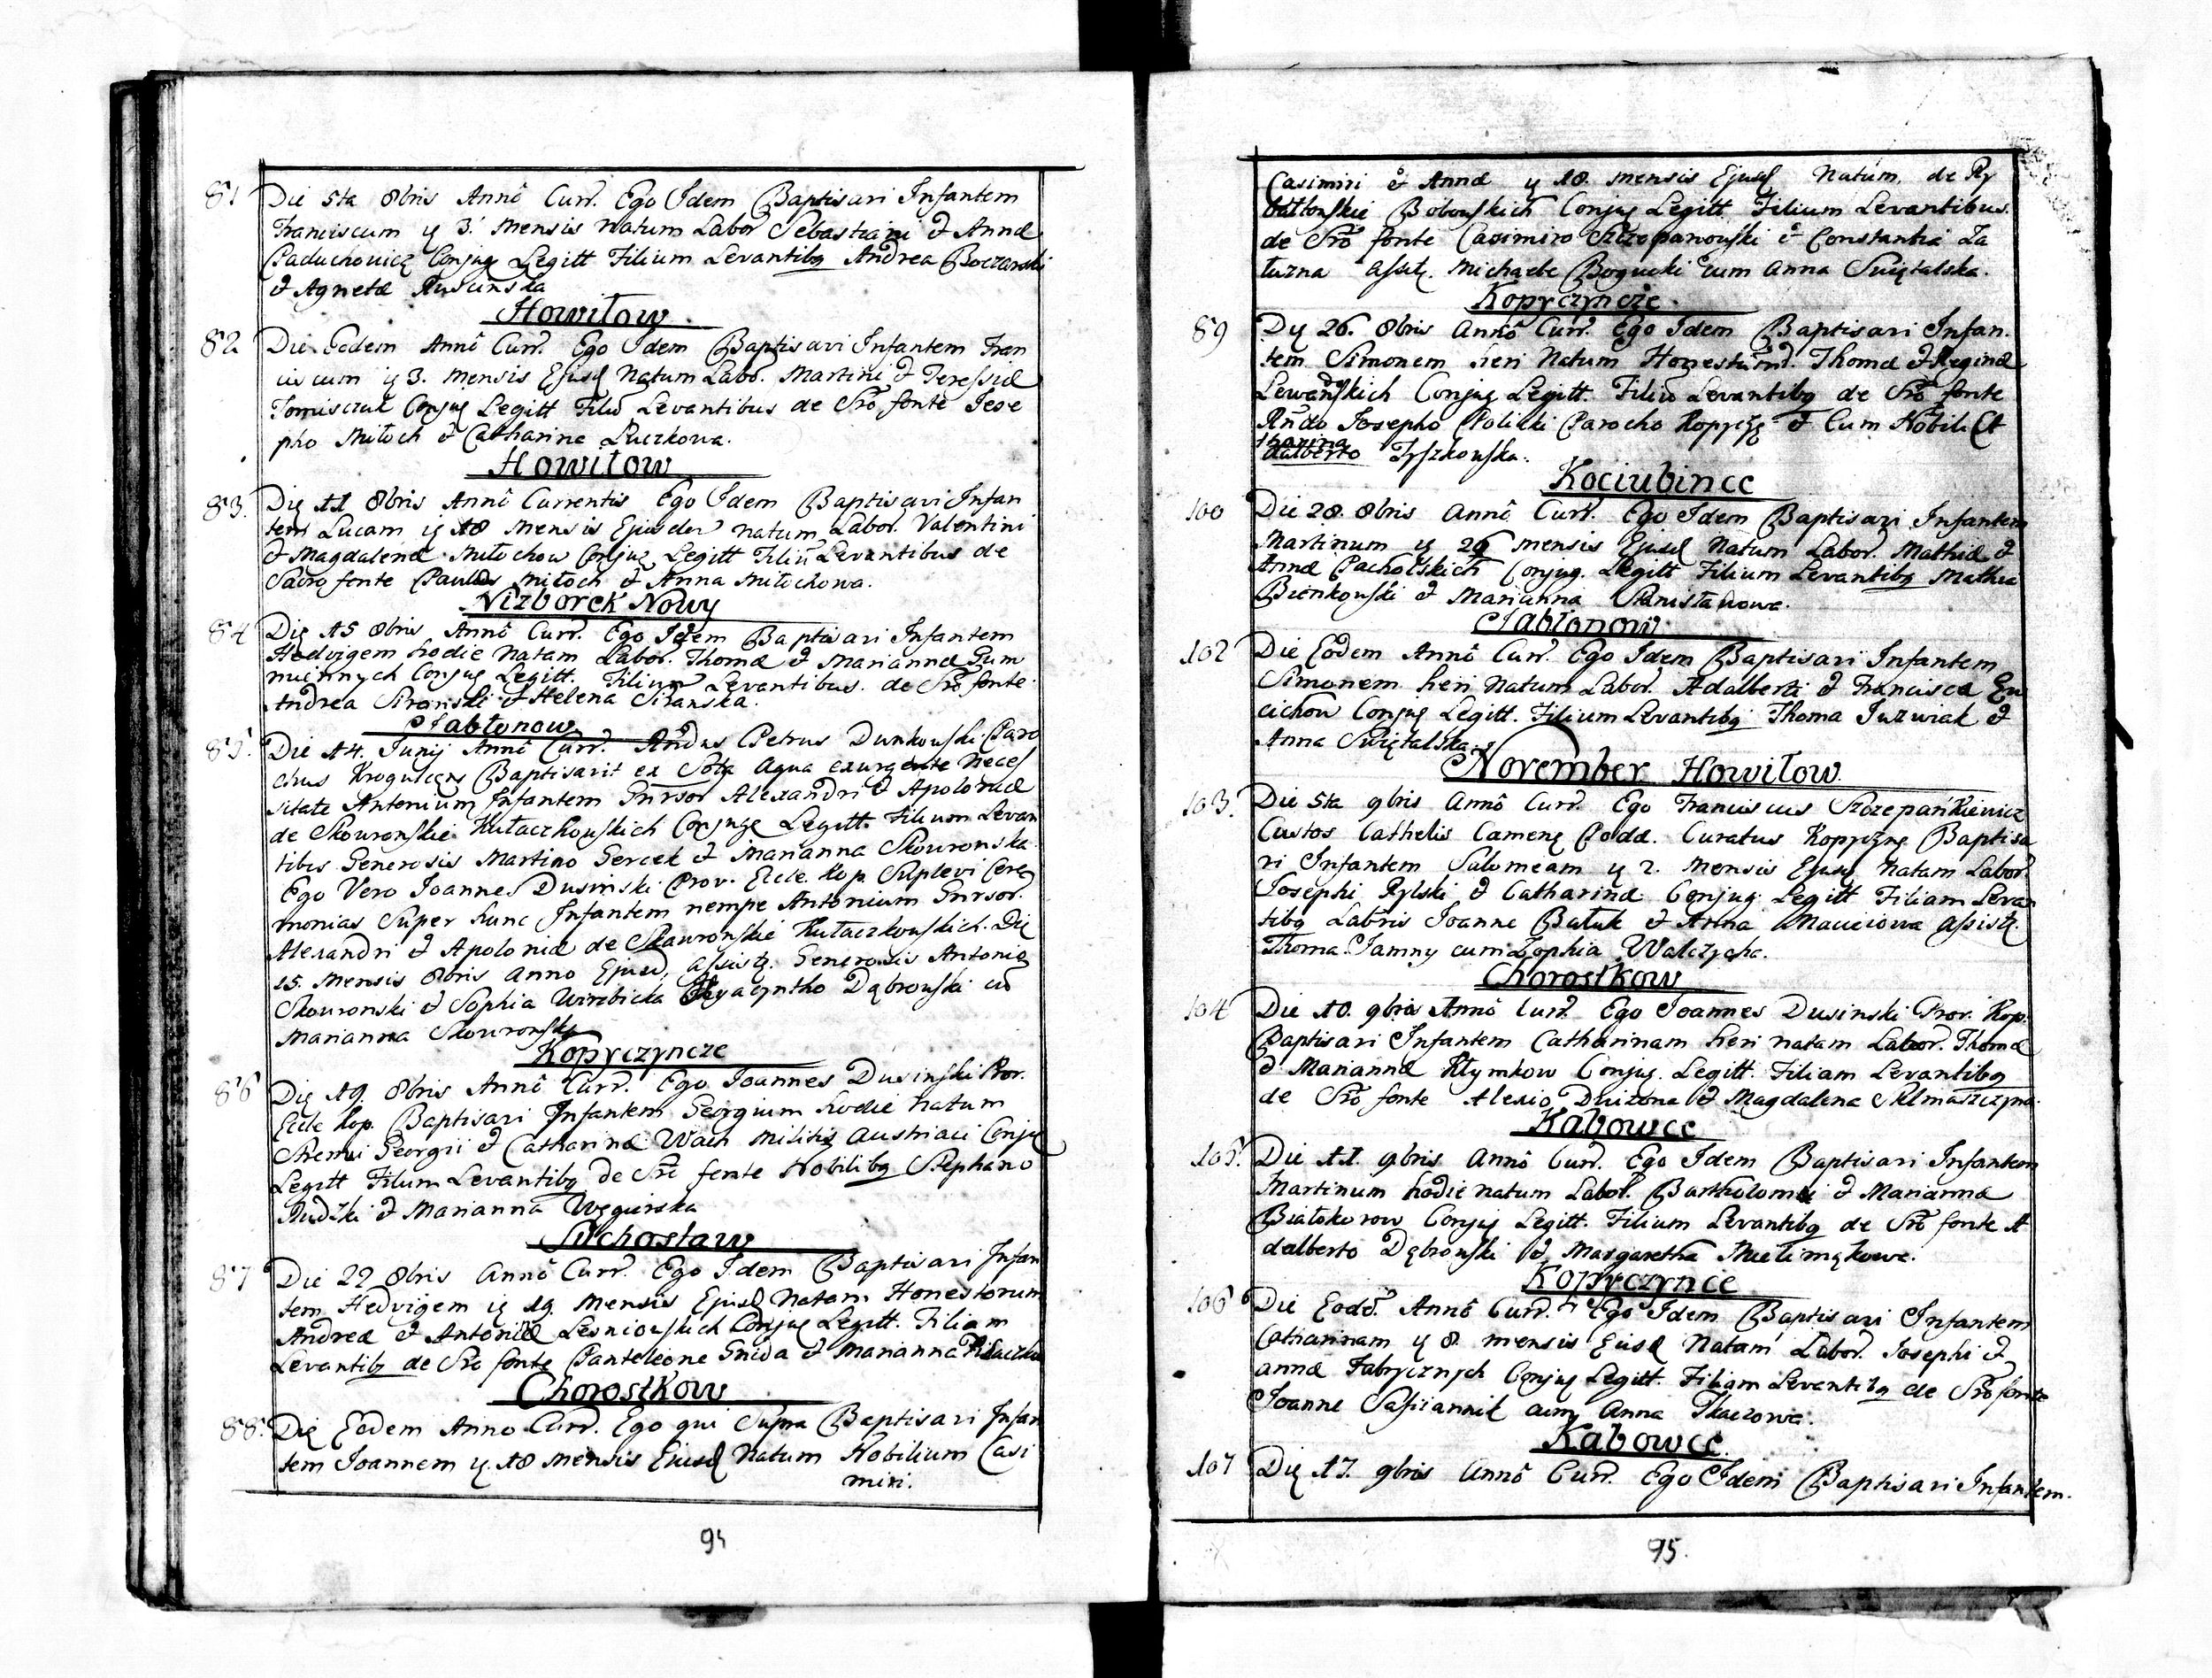 81 Die 5ta 8bris Annô Curr. Ego Idem Baptisavi Infantem
Franciscum y 3. Mensis Natum Labor Sebastiani & Annæ
Paduchowicz Conjug Legitt Filium Levantibq Andrea Boczarski
& Agneta
Howiłow
82 Die Eodem Annô Curr. Ego Idem Baptisavi Infantem Fran
ciscum y 3. Mensis Ejusd Natum Labo. Martini & Teressiæ
Tomiszcuk Conjug Legitt Filiū Levantibus de Sro fonte Iose
pho Miłoch & Catharina Luczkowa.
Howiłow
83. Die 11 8bris Annô Currentis Ego Idem Baptisavi Infan
tem Lucam y 10 Mensis Ejusdem natum Labor. Valentini
& Magdalenæ Miłochow Conjug Legitt Filiū Levantibus de
Sacro fonte Miłoch & Anna Miłochowa.
Nizborek Nowy
84 Die 15 8bris Annô Curr. Ego Idem Baptisavi Infantem
Hedvigem hodie Natam Labor. Thomæ & Mariannæ Gum
miennych Conjug Legitt. Filium Levantibus de Sro fonte
Andrea Siranski & Helena Siranska.
Jabłonow
85. Die 14. Junij Annô Curr. Rndus Petrus Dunkowski Paro
chus Baptisavit ex Sola Aqua exurgente Neces
sitate Antonium Infantem Alexandri & Apoloniæ
de Skowronskie Kułaczkowskich Conjuge Legitt. Filium Levan
tibus Generosis Martino Gercek & Marianna Skowronska
Ego Vero Joannes Dusinski Prov. Eccle. Kop. Suplevi Cere
monias Super hunc Infantem nempe Antonium
Alexandri & Apoloniæ de Skawronskie Kułaczkowskich. Die
15. Mensis 8bris Anno Ejusd, assistq. Generosis Antonio
Skowronski & Sophia Wirzbicka Hyacyntho Dąbrowski cū
Marianna Skowronska
Kopyczyncze
86 Die 19. 8bris Annô Curr. Ego Joannes Dusinski Prov.
Eccle Kop. Baptisavi Infantem Georgium hodie natum
Georgii & Catharinæ Wach Militis Austriaci Conjug
Legitt Filium Levantibq de Sro fonte Nobilibq Stephano
Rudzki & Marianna Węgierska
Suchostaw
87 Die 22 8bris Annô Curr. Ego Idem Baptisavi Infan
tem Hedvigem y 19 Mensis Ejusd Natam Honestorum
Andreæ & Antoniæ Lesniowskich Conjug Legitt. Filiam
Levantibq de Sro fonte Panteleone Gnida & Marianna
Chorostkow
88. Die Eodem Anno Curr. Ego qui Supra Baptisavi Infan
tem Joannem y. 18 Mensis Ejusd Natum Nobilium Casi
miri.
94
Casimiri & Annæ y 18. mensis Ejusd Natum, de Ry
Bobowskich Conjug Legitt Filium Levantibus
de Sro fonte Casimiro Szczepanowski & Constantia Za
tuzna assitq. Michaele Bogucki cum Anna Świętalska.
Kopyczyncze
89 Die 26. 8bris Annô Curr. Ego Idem Baptisavi Infan
tem Simonem heri Natum Honestūm. Thomæ & Reginæ
Lewandskich Conjug Legitt. Filiū Levantibq de Sro fonte
Rndo Josepho Parocho & Cum Nobili Ca
tharina
Adalberto Tyszkowska.
Kociubince
100 Die 28. 8bris Annô Curr. Ego Idem Baptisavi Infantem
Martinum y 26 mensis Ejusd Natum Labor. Mathiæ &
Annæ Pacholskich Conjug. Legitt Filium Levantibq Mathia
Bienkowski & Marianna Stanisławowa.
Jabłonow
102 Die Eodem Annô Curr. Ego Idem Baptisavi Infantem
Simonem heri Natum Labor. Adalberti & Franciscæ
cichow Conjug Legitt. Filium Levantibq Thoma Juzwiak &
Anna Świętalska.
November Howiłow
103. Die 5ta 9bris Annô Curr. Ego Franciscus Szczepańkiewicz
Custos Cathelis Camene Podd. Curatus Kopyczyne Baptisa
vi Infantem Salomeam y 2. Mensis Ejusd Natam Labor
Josephi Rylski & Catharinæ Conjug Legitt Filiam Levan
tibq Labris Joanne Bałuk & Anna Maciciowa Assistq.
Thoma Jamny cum Zophia Walczycha.
Chorostkow
104 Die 10. 9bris Annô Curr. Ego Joannes Dusinski Prov. Kop.
Baptisavi Infantem Catharinam heri natam Labor. Thomæ
& Mariannæ Klymkow Conjug. Legitt. Filiam Levantibq
de Sro fonte Alexio & Magdalena
Kabowce
105. Die 11. 9bris Annô Curr. Ego Idem Baptisavi Infantem
Martinum hodie natum Labor. Bartholomæi & Mariannæ
Białokorow Conjug Legitt. Filium Levantibq de Sro fonte A
dalberto Dąbrowski & Margaretha
Kopyczynce
106 Die Eodē. Annô Curr. Ego Idem Baptisavi Infantem
Catharinam y 8. mensis Ejusd Natam Labor. Josephi &
annæ Fabrycznych Conjug Legitt. Filiam Levantibq de Sro fonte
Joanne cum Anna Tkaczowa.
Kabowce
107 Die 17. 9bris Annô Curr. Ego Idem Baptisavi Infantem.
95.